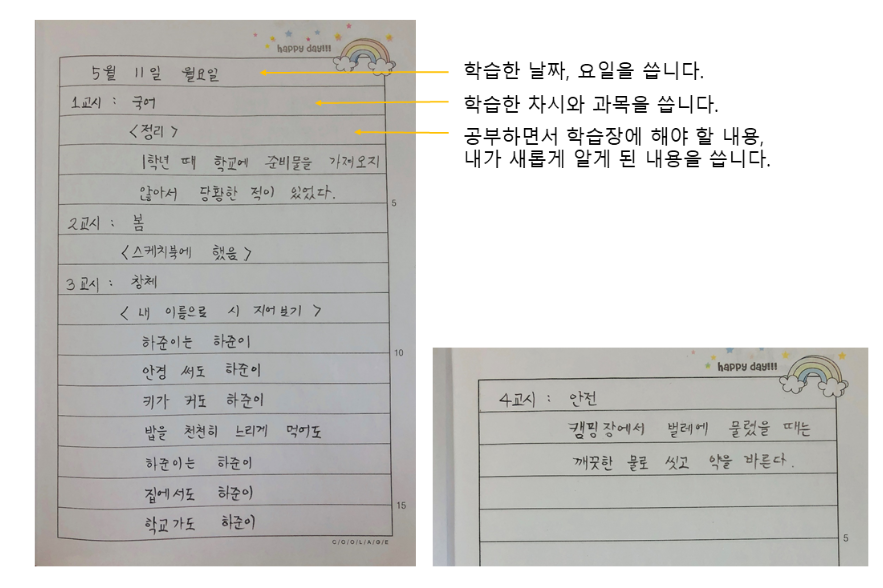 happy day!!!
5월 11일 월요일
1교시 : 국어
<정리>
1학년 때 학교에 준비물을 가져오지
않아서 당황한 적이 있었다.
5
2교시 : 봄
<스케치북에 했음>
3교시 : 창체
< 내 이름으로 시 지어보기 >
하준이는 하준이
10
안경 써도 하준이
키가 커도 하준이
밥을 천천히 느리게 먹어도
하준이는 하준이
집에서도 하준이
15
학교가도 하준이
C/O/O/L/A/G/E
학습한 날짜, 요일을 씁니다.
학습한 차시와 과목을 씁니다.
공부하면서 학습장에 해야 할 내용,
내가 새롭게 알게 된 내용을 씁니다.
happy day!!!
4교시 : 안전
캠핑장에서 벌레에 물렸을 때는
깨끗한 물로 씻고 약을 바른다.
5